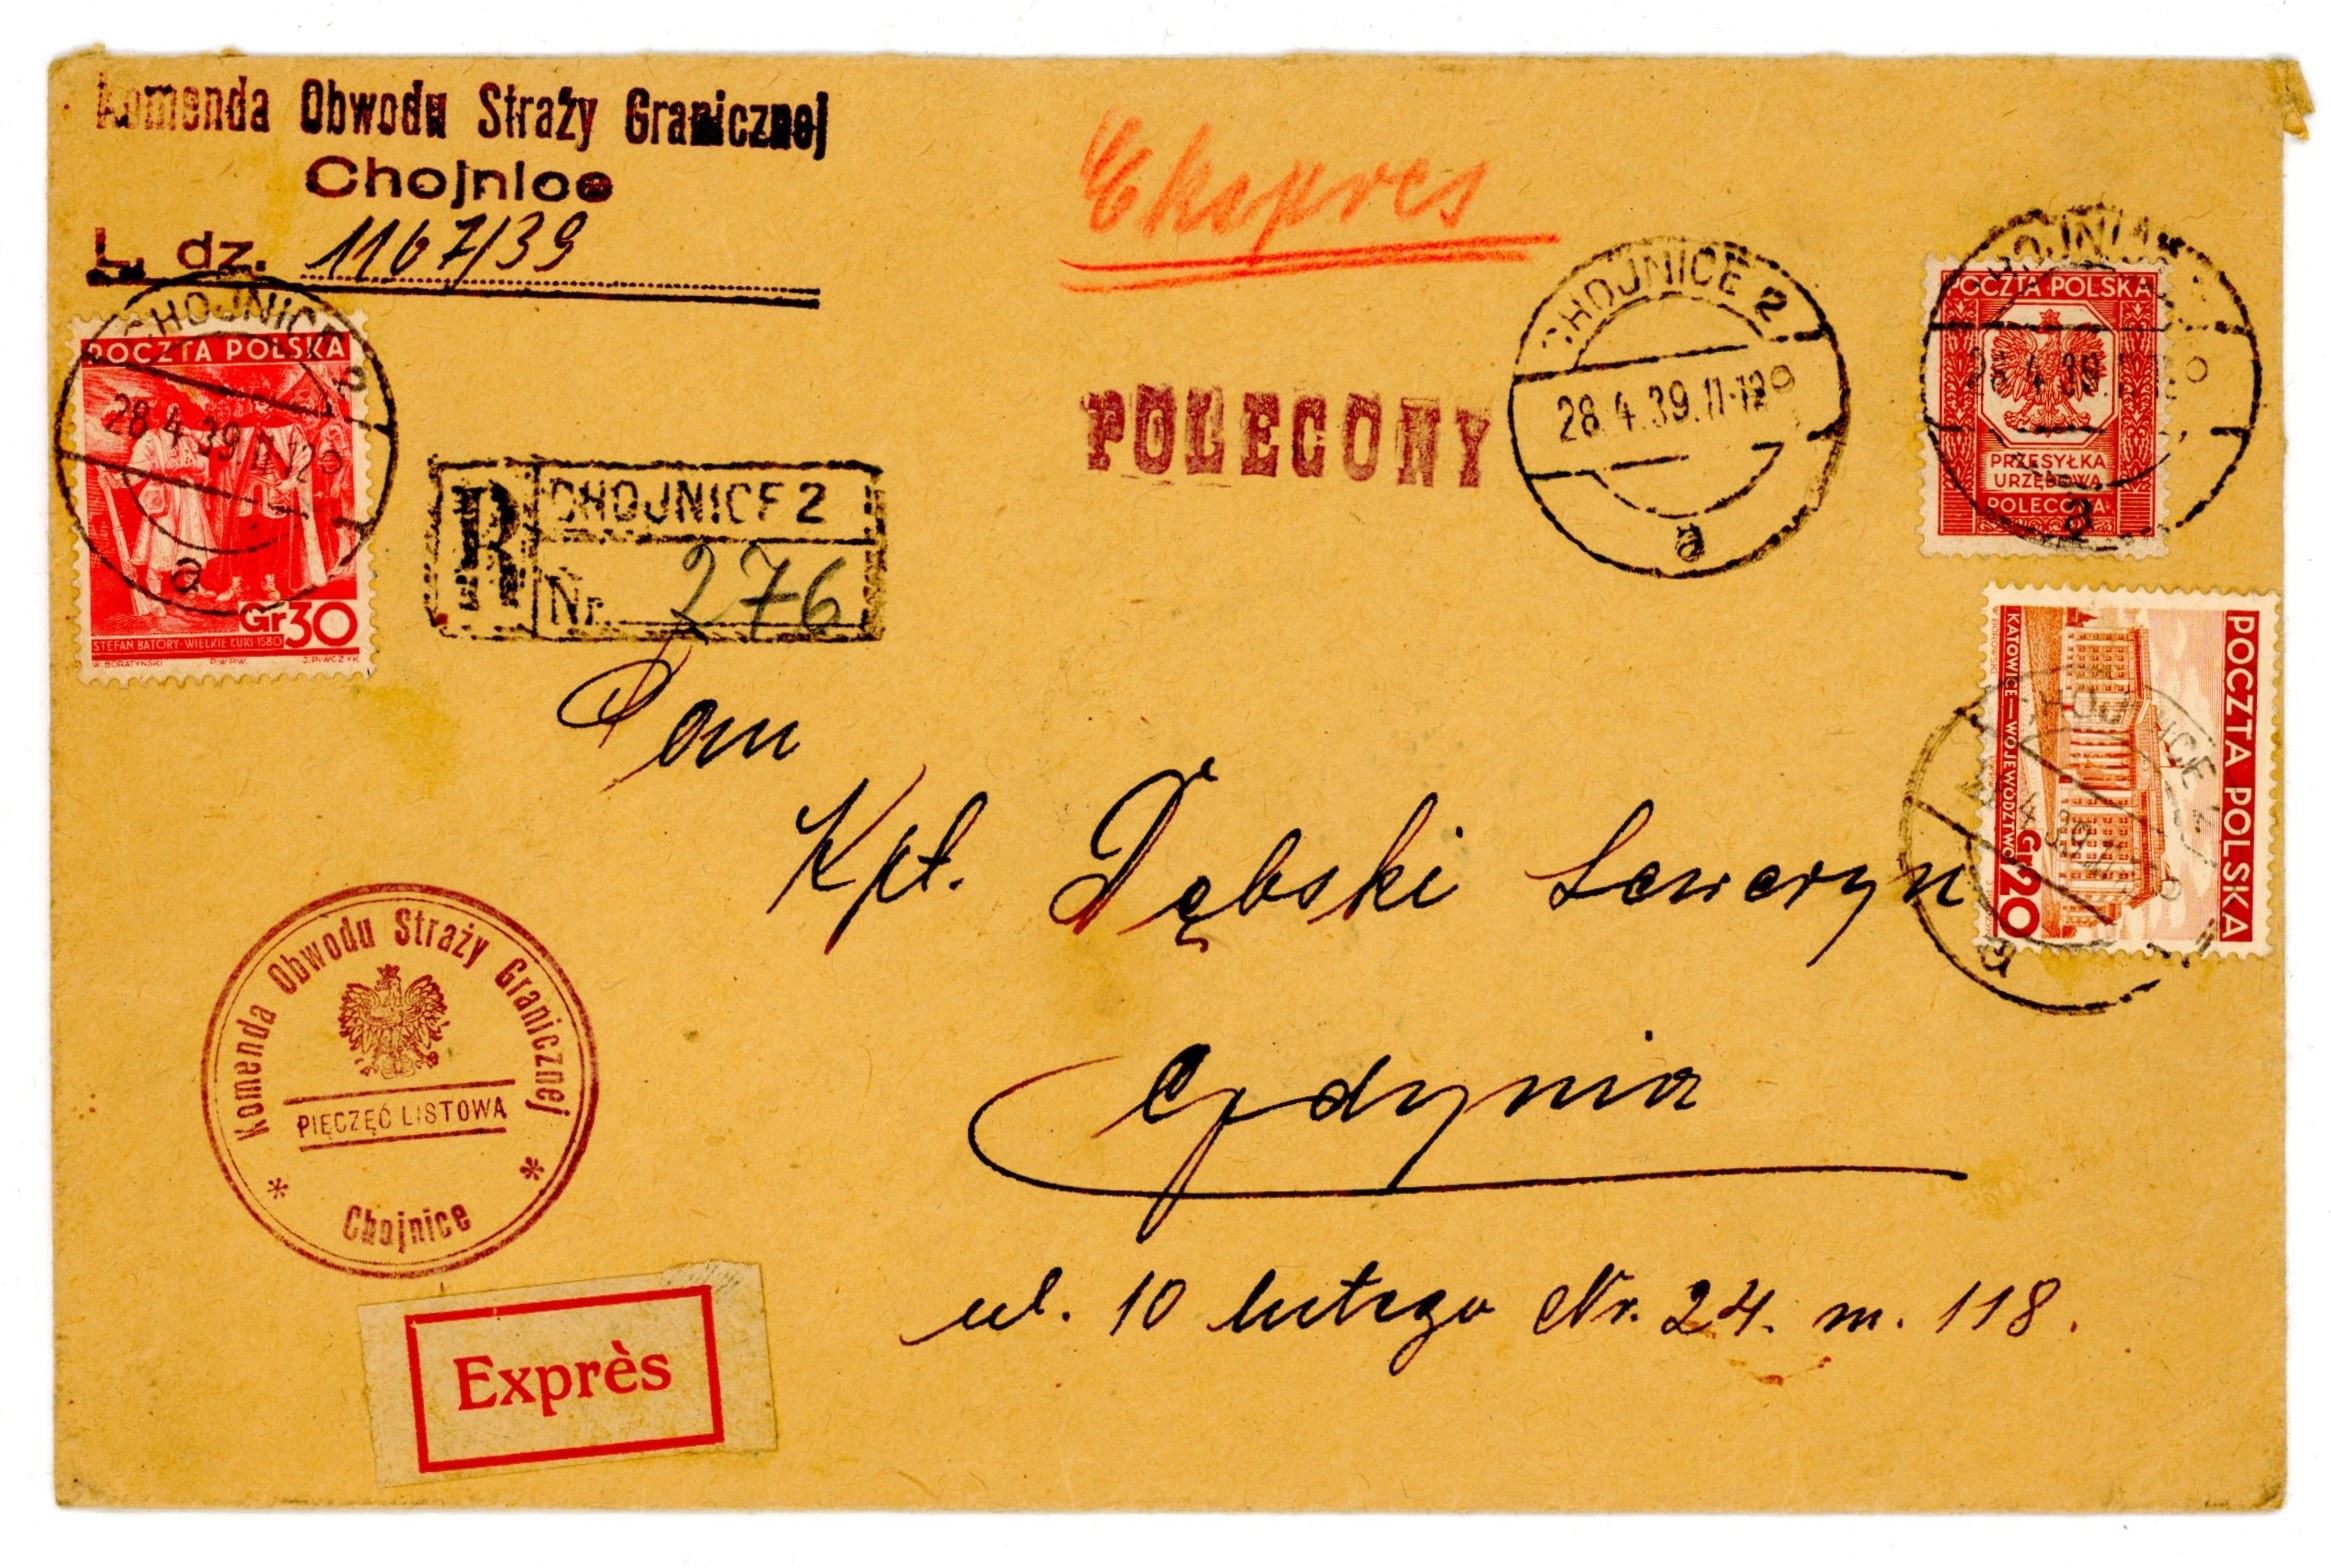 Komenda Obwodu Straży Granicznej
Chojnice
L. dz. 1167/39
Ekspres
CHOJNICE 2
28.4.39.11-12
a
POCZTA POLSKA
Gr 30
STEFAN BATORY-WIELKIE ŁUKI 1580
W. BORATYŃSKI P.W.P.W. J. PIWCZYK
R CHOJNICE 2
Nr. 276
POLECONY
CHOJNICE 2
28.4.39.11-12
e
28.4.39
a
POCZTA POLSKA
PRZESYŁKA
URZĘDOWA
POLECONA
POCZTA POLSKA
Gr 20
KATOWICE — WOJEWÓDZTWO
CHOJNICE 2
4.39
Pan
Kpt. Dębski Seweryn
Gdynia
ul. 10 lutego Nr. 24. m. 118.
Komenda Obwodu Straży Granicznej
PIĘCZĘĆ LISTOWA
* Chojnice *
Exprès